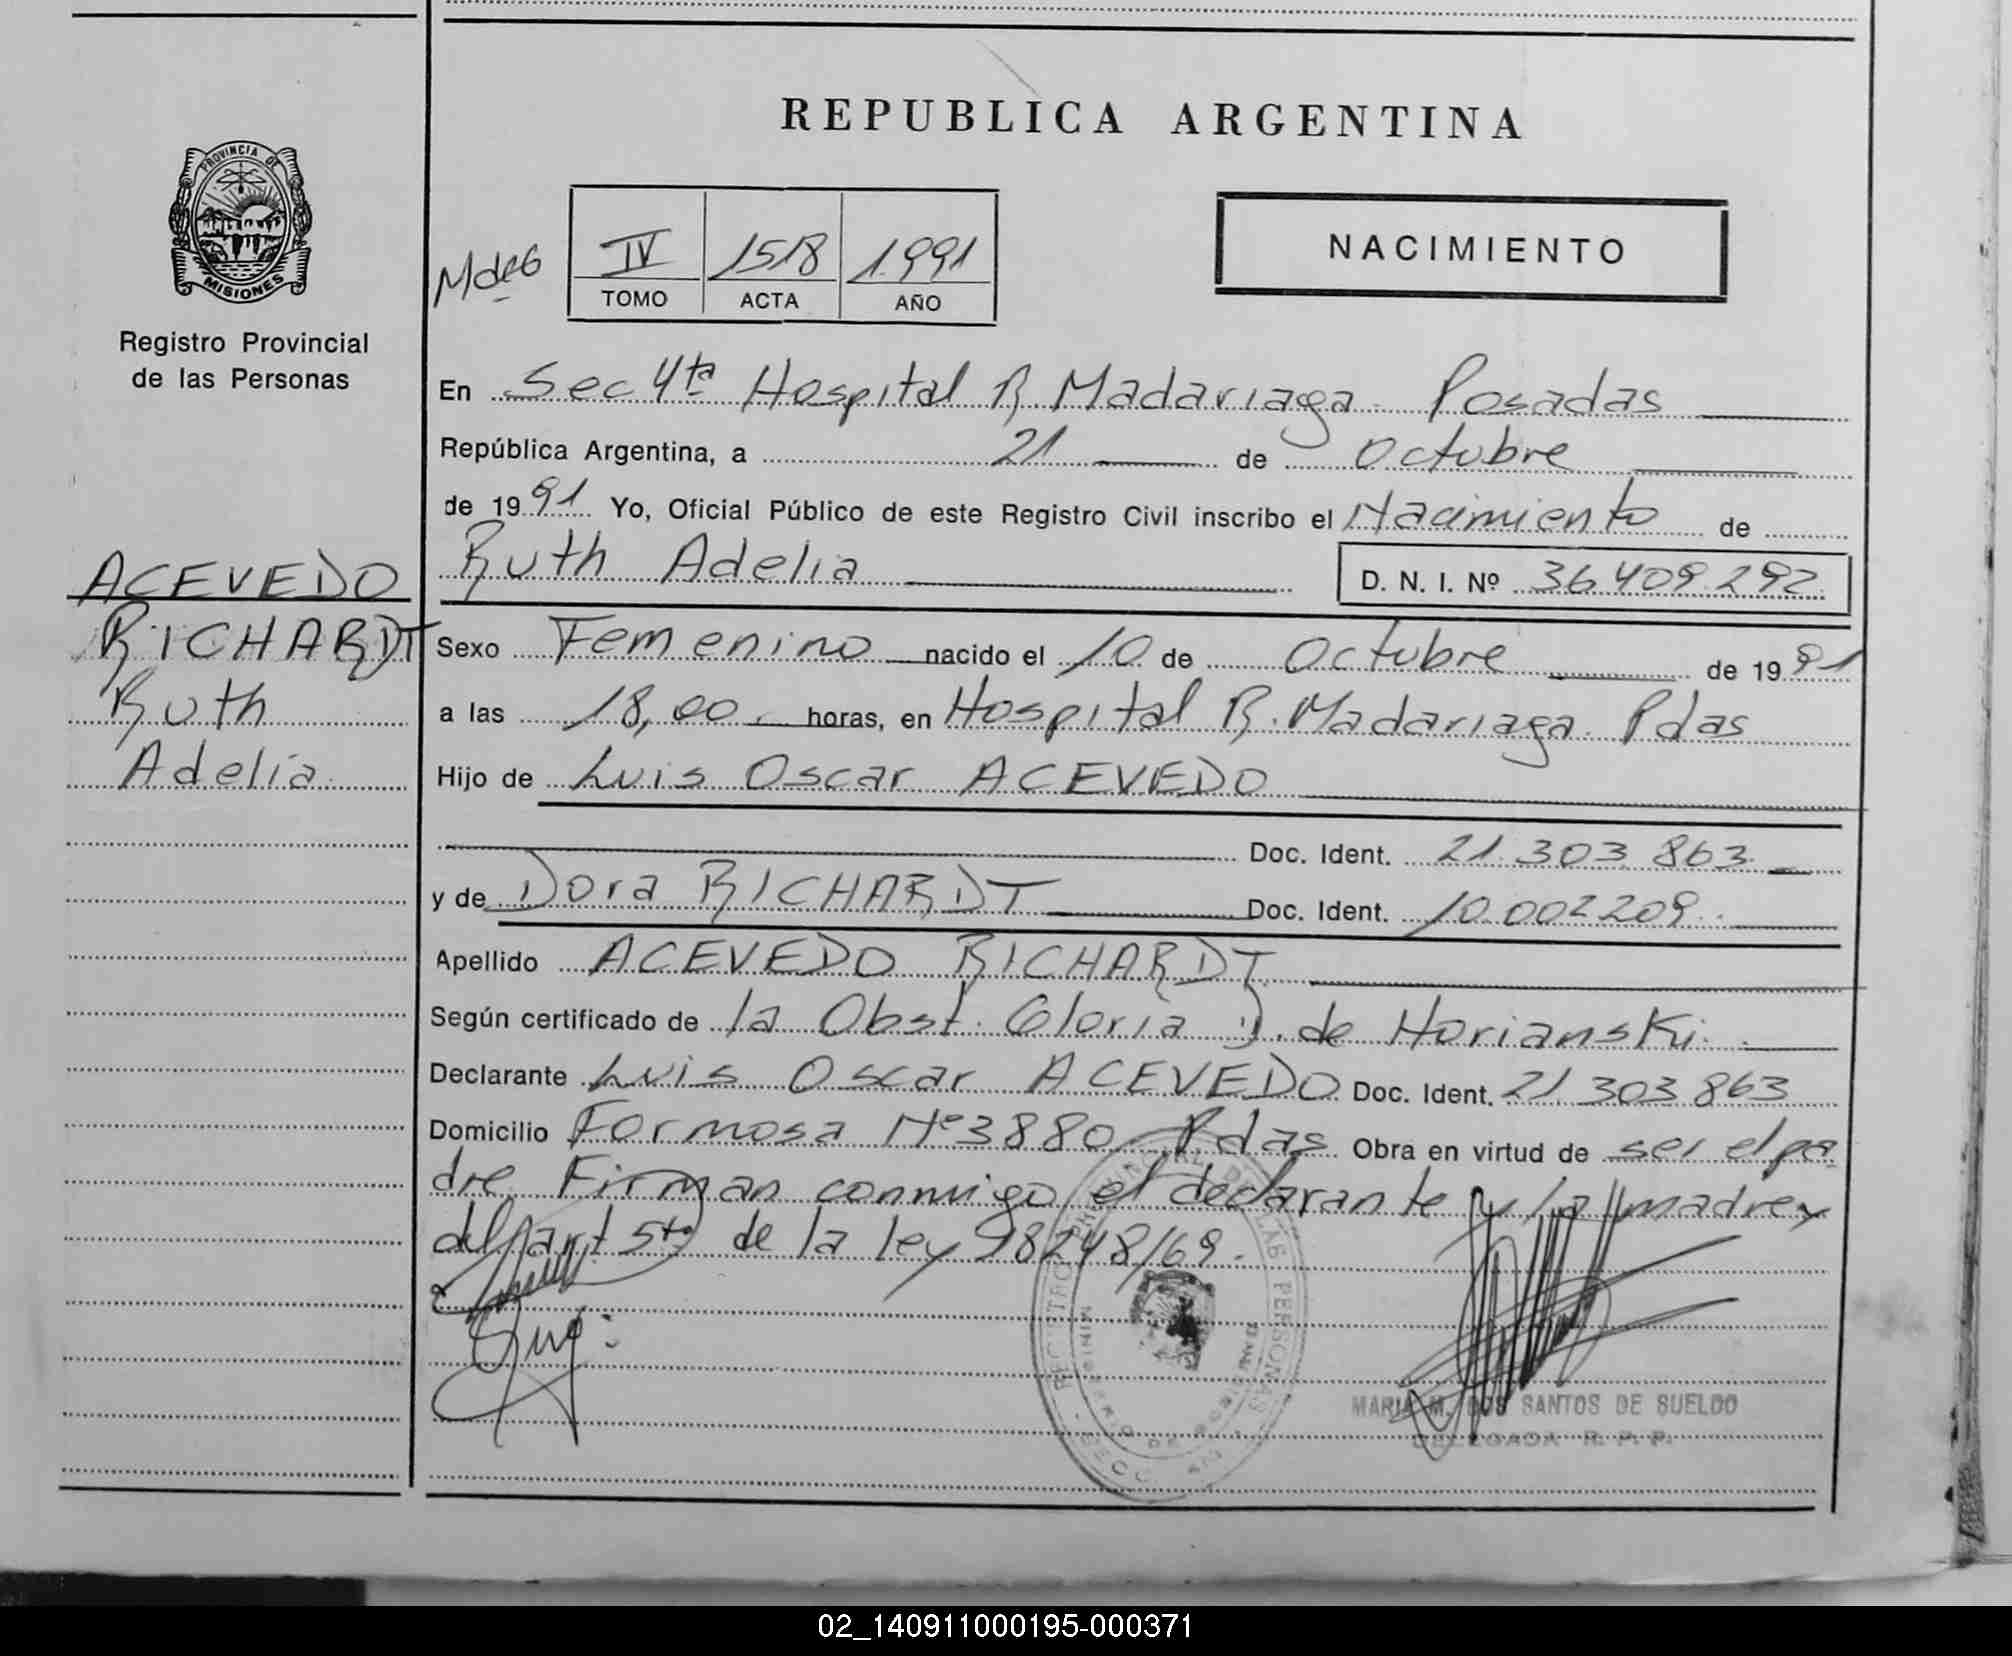 REPUBLICA ARGENTINA
PROVINCIA DE
MISIONES
Registro Provincial
de las Personas
IV 1518 1991
TOMO ACTA AÑO
NACIMIENTO
En Sec 4ta Hospital R Madariaga Posadas
República Argentina, a 21 de Octubre
de 1991 Yo, Oficial Público de este Registro Civil inscribo el Nacimiento de
Ruth Adelia D. N. I. Nº 36.409.292
ACEVEDO
RICHARDT
Ruth
Adelia
Sexo Femenino nacido el 10 de Octubre de 1991
a las 18,00 horas, en Hospital R. Madariaga Pdas
Hijo de Luis Oscar ACEVEDO
Doc. Ident. 21.303.863
y de Dora RICHARDT Doc. Ident. 10.002.209
Apellido ACEVEDO RICHARDT
Según certificado de la Obst. Gloria D. de Horianski
Declarante Luis Oscar ACEVEDO Doc. Ident. 21 303 863
Domicilio Formosa Nº 3880 Pdas Obra en virtud de ser el pa-
dre Firman conmigo el declarante y la madre y
del art 5to de la ley 18248/69.
REGISTRO PROVINCIAL DE LAS PERSONAS
MARIA M. DOS SANTOS DE SUELDO
DELEGADA R. P. P.
02_140911000195-000371